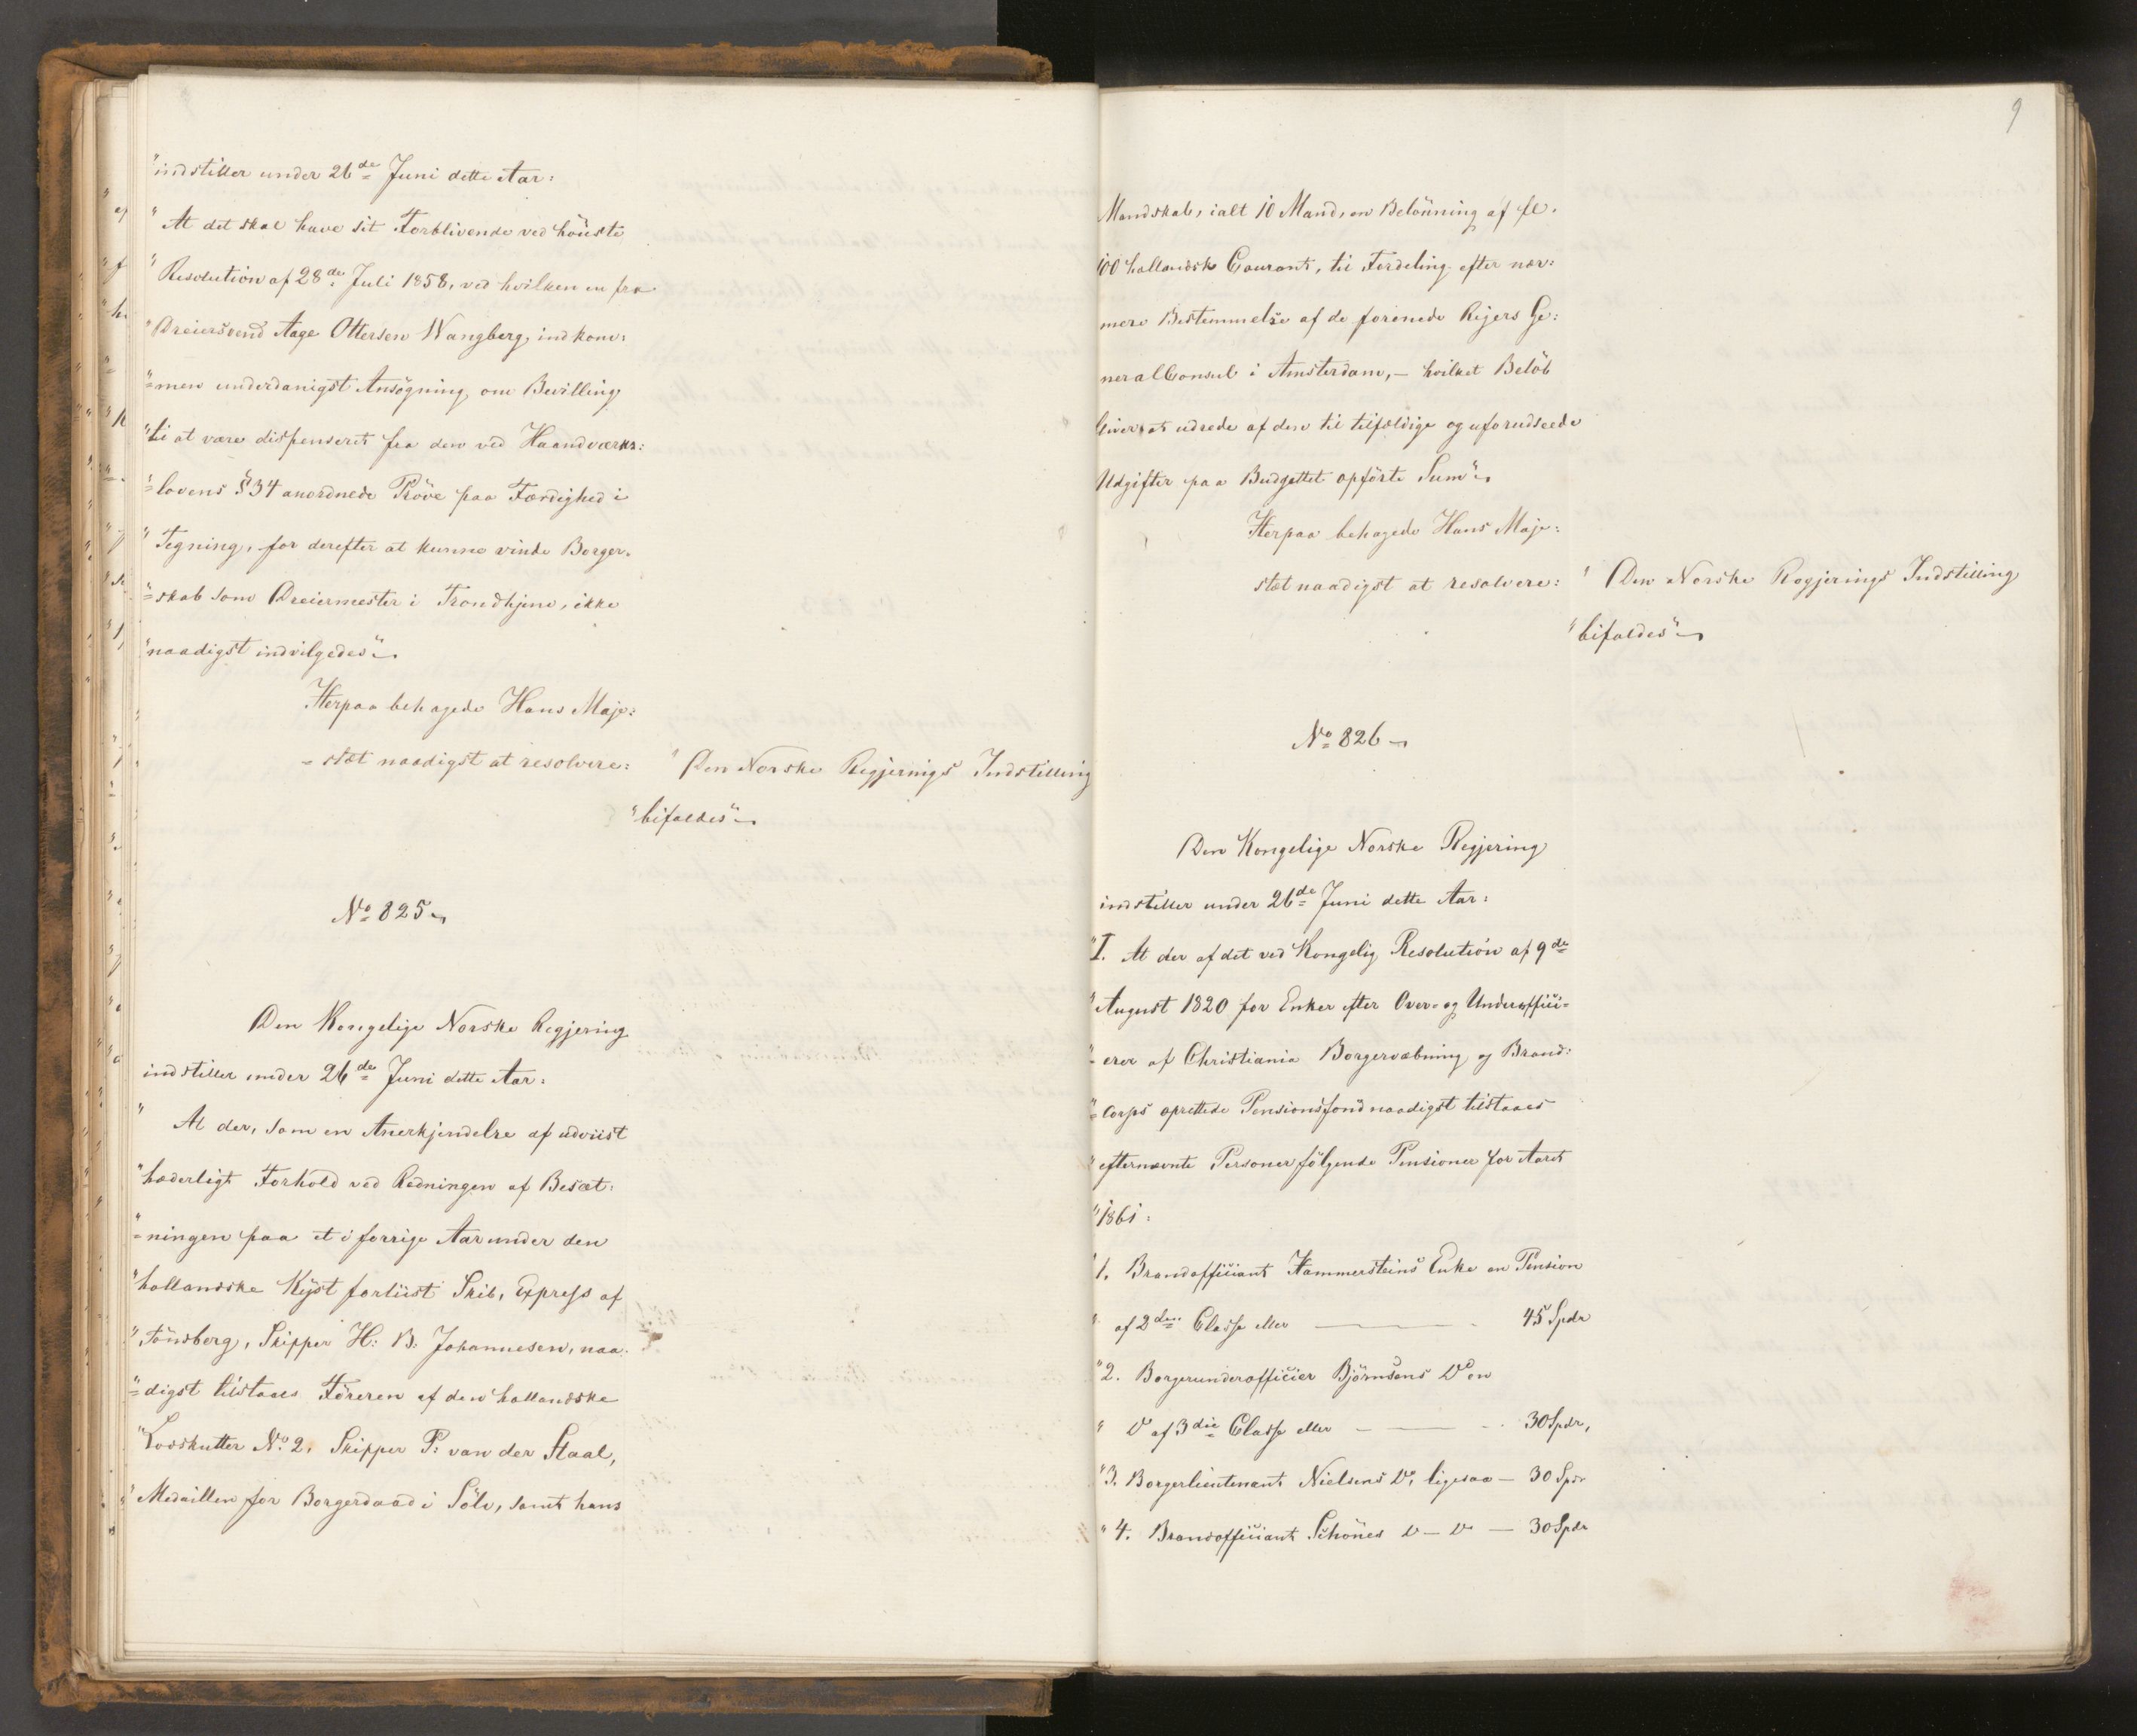 "indstiller under 26de Juni dette Aar:
" At det skal have sit Forblivende ved höieste
" Resolution af 28de Juli 1858, ved hvilken en fra
" Dreiersvend Aage Ottersen Wangberg, indkom:
"=men underdanigst Ansögning om Bevilling
"til at være dispenseret fra den ved Haandværks:
"=lovens § 34 anordnede Pröve paa Færdighed i
" Tegning, for derefter at kunne vinde Borger=
"=skab som Dreiermester i Trondhjem, ikke
"naadigst indvilgedes".
Herpaa behagede Hans Maje:
=stæt naadigst at resolvere:
" Den Norske Regjerings Indstilling
"bifaldes".
No 825.
Den Kongelige Norske Regjering
indstiller under 26de Juni dette Aar:
" At der, som en Anerkjendelse af udviist
"hæderligt Forhold ved Redningen af Besæt:
"=ningen paa et i forrige Aar under den
"hollandske Kyst forliist Skib, Express af
"Tönsberg, Skipper H: B. Johannesen, naa:
"=digst tilstaaes Föreren af den hollandske
"Lodskutter No 2, Skipper P: van der Staal,
"Medaillen for Borgerdaad i Sölv, samt hans
9
Mandskab, ialt 10 Mand, en Belönning af fl.
100 hollandsk Courant, til Fordeling efter nær:
mere Bestemmelse af de forenede Rigers Ge:
neralConsul i Amsterdam, - hvilket Belöb
bliver at udrede af den til tilfældige og uforudseede
Udgifter paa Budgettet opförte Sum".
Herpaa behagede Hans Maje:
stæt naadigst at resolvere:
" Den Norske Regjerings Indstilling
"bifaldes".
No 826.
Den Kongelige Norske Regjering
indstiller under 26de Juni dette Aar:
"I. At der af det ved Kongelig Resolution af 9de
"August 1820 for Enker efter Over- og Underoffici=
"=erer af Christiania Borgervæbning og Brand:
"=Corps oprettede Pensionsfond naadigst tilstaaes
"efternævnte Personer fölgende Pensioner for Aaret
"1861:
"1. Brandofficiant Hammersteins Enke en Pension
" af 2den Classe eller — 45 Spdr
"2. Borgerunderofficier Björnsens Do en
" Do af 3die Classe eller — 30 Spdr,
"3. Borgerlieutenant Nielsens Do, ligesaa — 30 Spdr
"4. Brandofficiant Schönes Do — Do — 30 Spdr